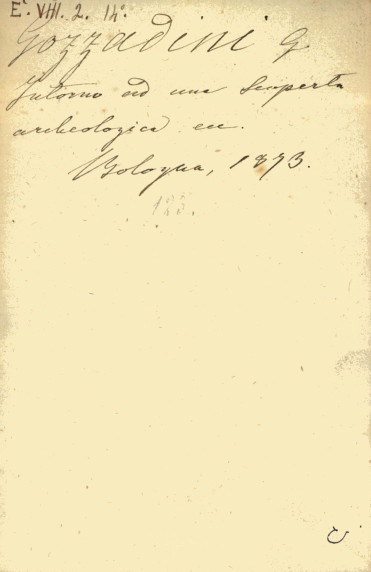 E'. VIII. 2. 14°
Gozzadini G
Intorno ad una scoperta
archeologica ec.
Bologna, 1873.